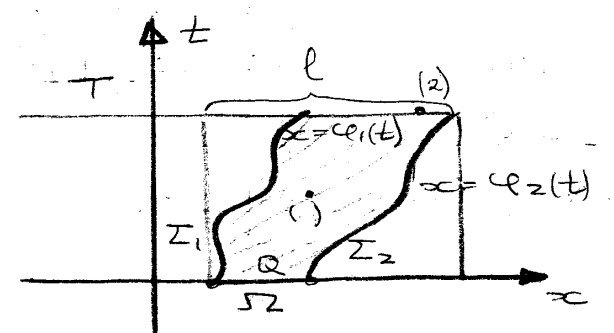 t
l
T
(2)
x=φ₁(t)
x=φ₂(t)
Σ₁
Σ₂
Q
Ω
x